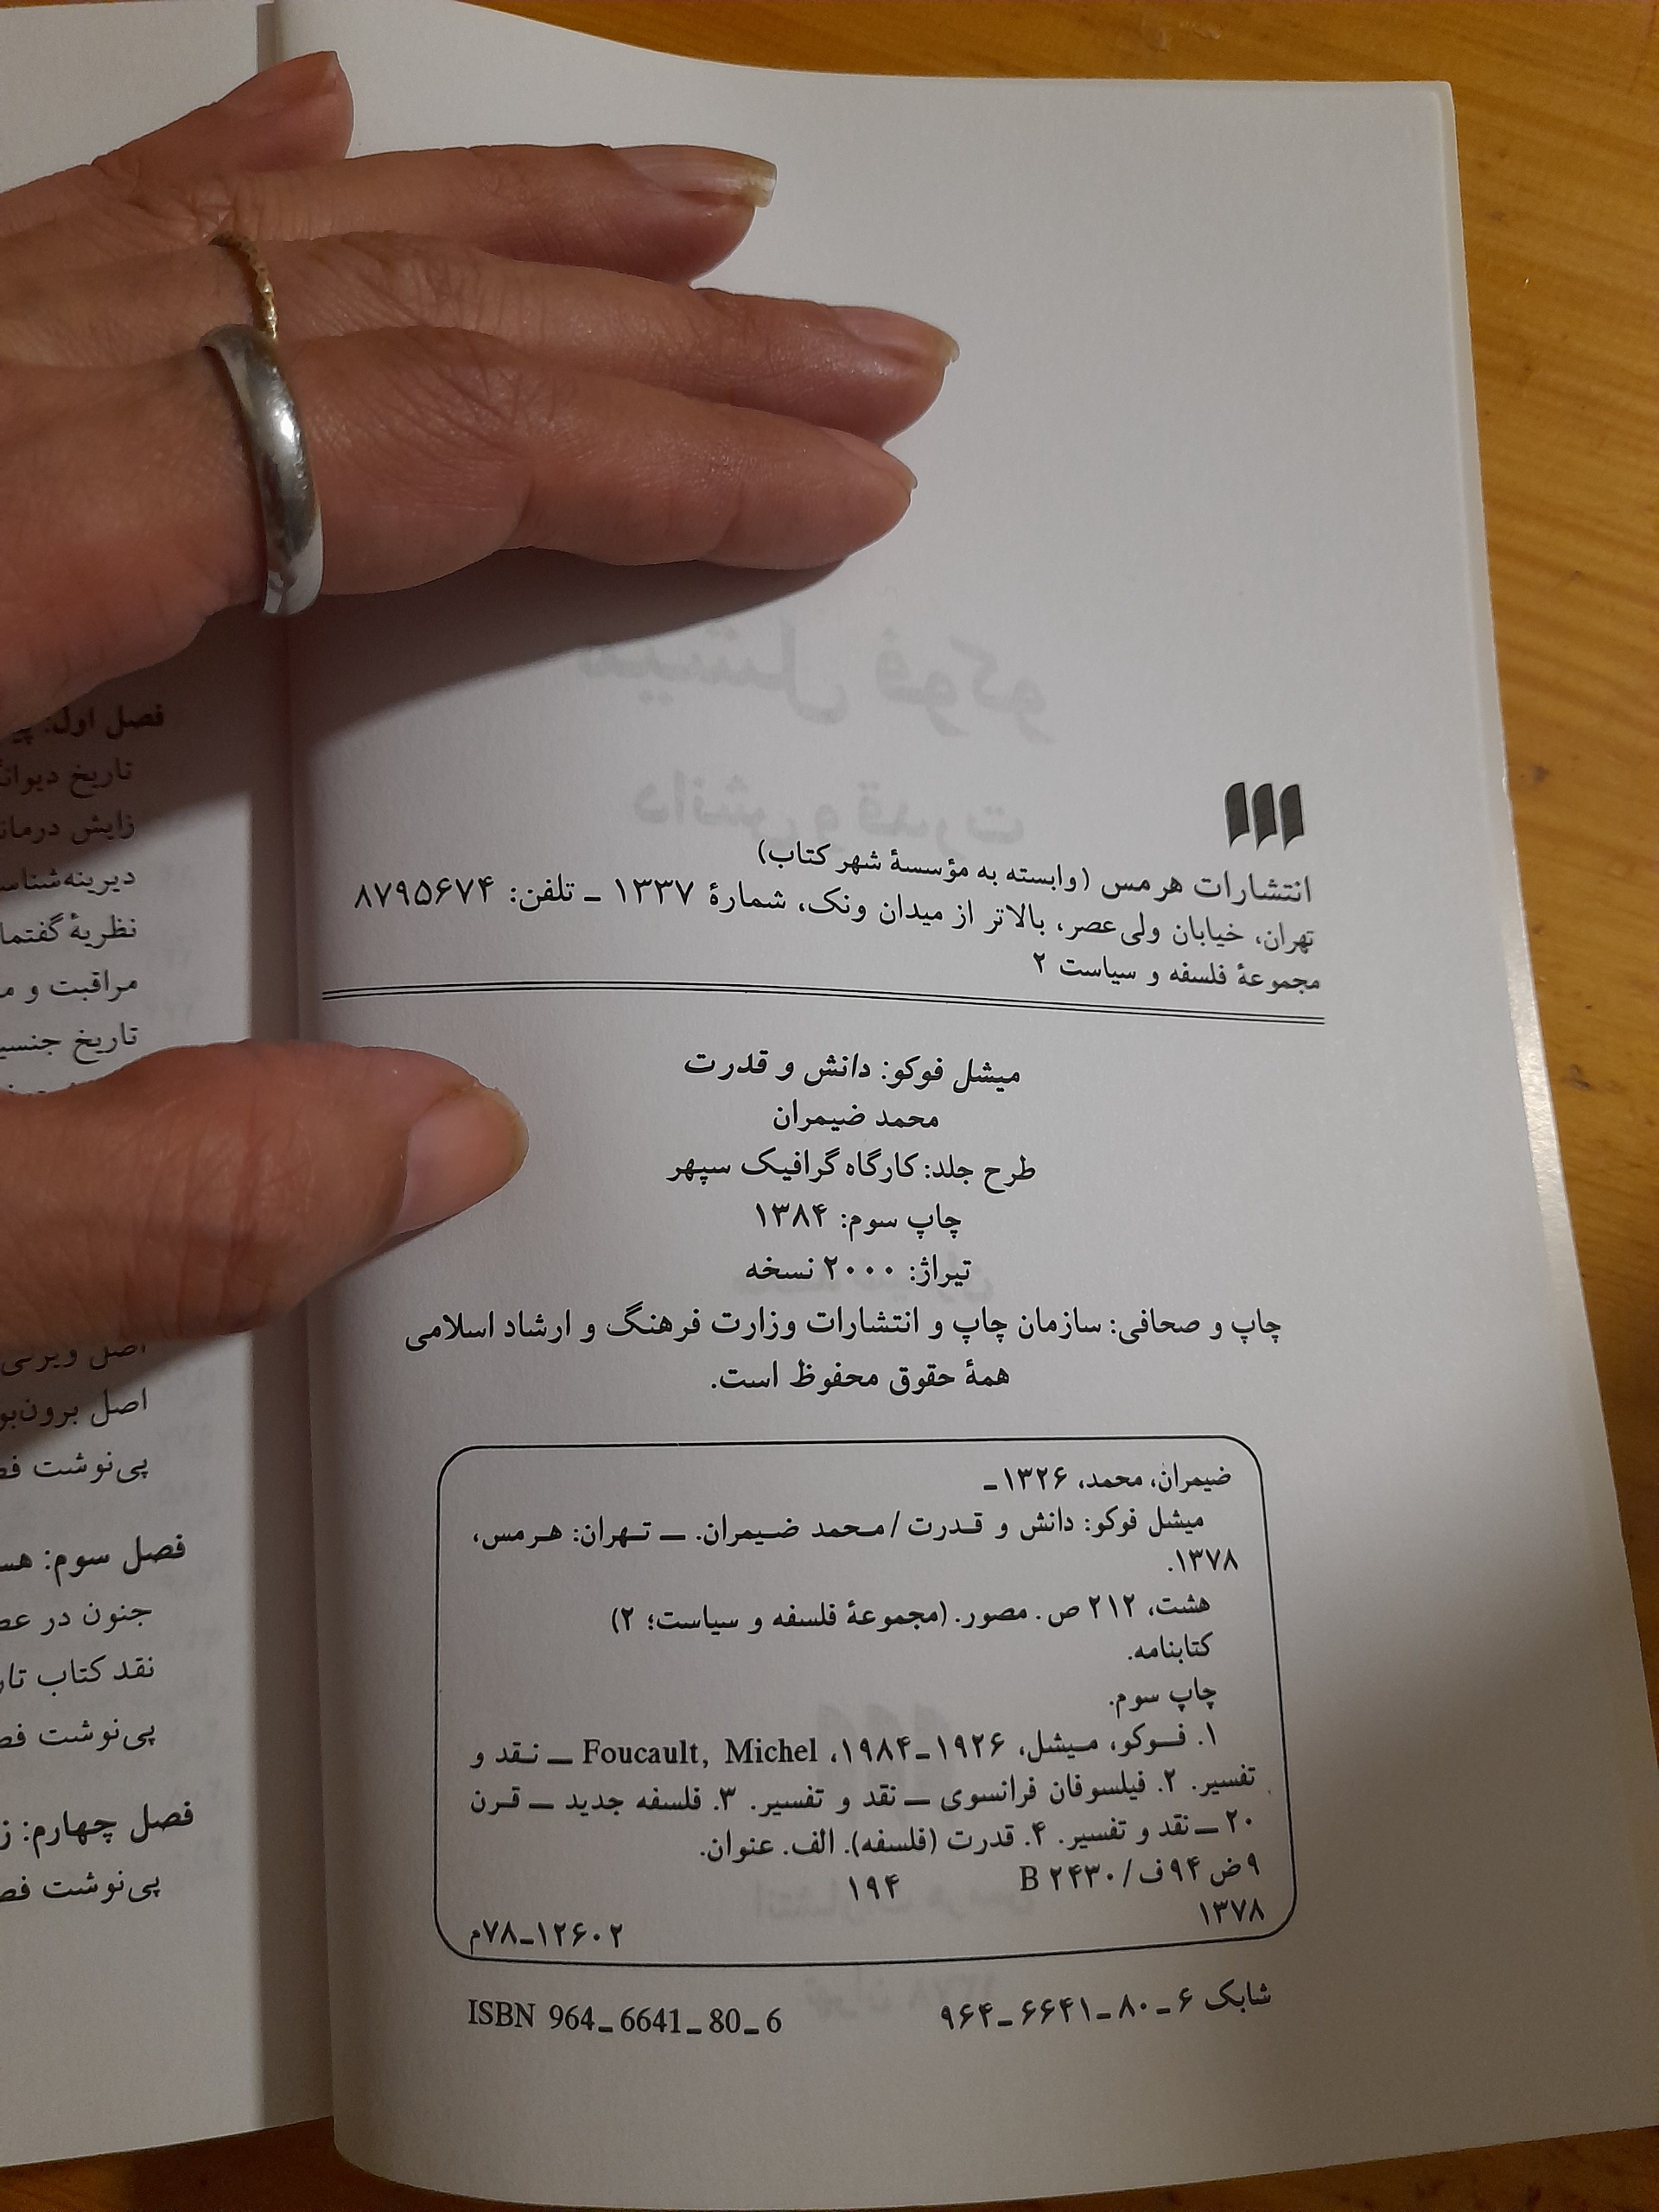 انتشارات هرمس (وابسته به مؤسسهٔ شهر کتاب)
تهران، خیابان ولی‌عصر، بالاتر از میدان ونک، شمارهٔ ۱۳۳۷ ـ تلفن: ۸۷۹۵۶۷۴
مجموعهٔ فلسفه و سیاست ۲
میشل فوکو: دانش و قدرت
محمد ضیمران
طرح جلد: کارگاه گرافیک سپهر
چاپ سوم: ۱۳۸۴
تیراژ: ۲۰۰۰ نسخه
چاپ و صحافی: سازمان چاپ و انتشارات وزارت فرهنگ و ارشاد اسلامی
همهٔ حقوق محفوظ است.
ضیمران، محمد، ۱۳۲۶ـ
میشل فوکو: دانش و قدرت / محمد ضیمران. ــ تهران: هرمس،
۱۳۷۸.
هشت، ۲۱۲ ص. مصور. (مجموعهٔ فلسفه و سیاست؛ ۲)
کتابنامه.
چاپ سوم.
۱. فوکو، میشل، ۱۹۲۶ـ۱۹۸۴، Foucault, Michel ــ نقد و
تفسیر. ۲. فیلسوفان فرانسوی ــ نقد و تفسیر. ۳. فلسفه جدید ــ قرن
۲۰ ــ نقد و تفسیر. ۴. قدرت (فلسفه). الف. عنوان.
۹ض۹۴ف/B ۲۴۳۰ ۱۹۴
۱۳۷۸
۱۲۶۰۲ـ۷۸م
شابک ۶ـ۸۰ـ۶۶۴۱ـ۹۶۴
ISBN 964_6641_80_6
فصل اول:
تاریخ
زایش
نظریهٔ
مراقبت و
تاریخ
اصل
اصل
پی‌نوشت
فصل سوم:
جنون در
نقد کتاب
پی‌نوشت
فصل چهارم:
پی‌نوشت